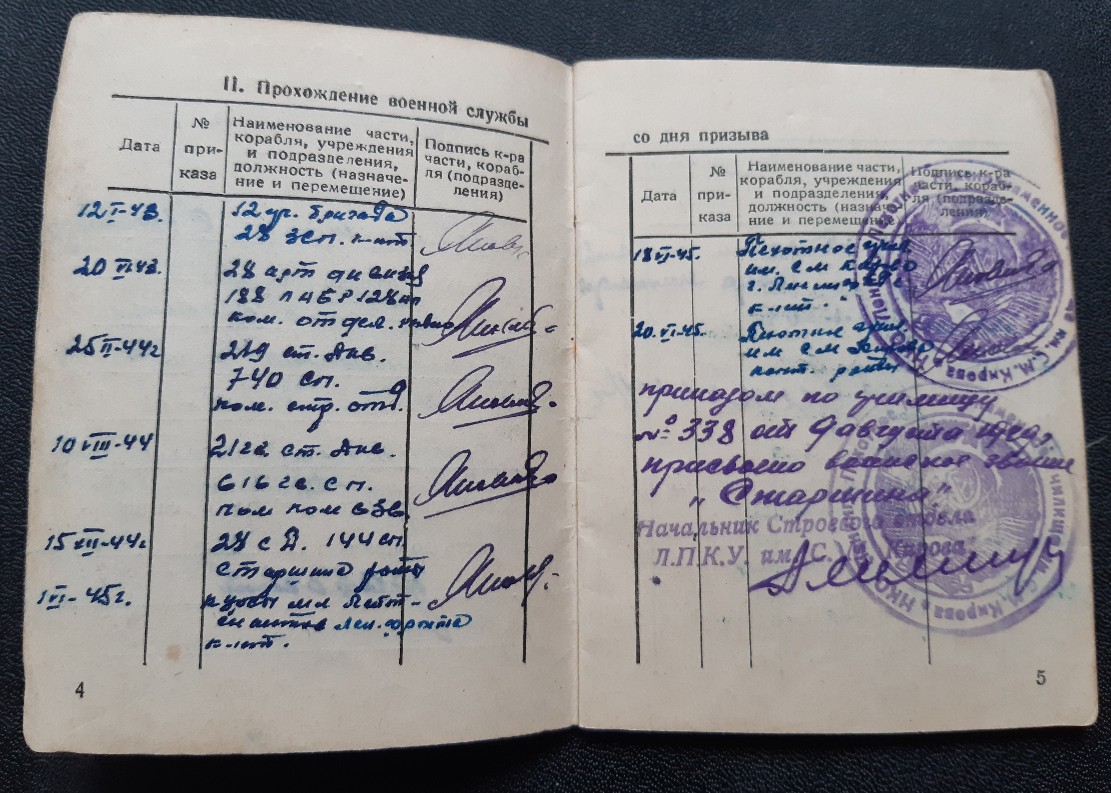 II. Прохождение военной службы
Дата
№ при- каза
Наименование части,
корабля, учреждения
и подразделения,
должность (назначе-
ние и перемещение)
Подпись к-ра
части, кораб-
ля (подразде-
ления)
12 I-43.
12 уч. бригада
28 зсп. к-нт.
20 VI-43.
28 арт дивизия
188
ком. отдел.
25 II-44г
219 ст. див.
740 сп.
ком. стр. отд.
10 VIII-44
21 гв ст. див.
61 гв. сп.
пом ком взв.
15 XII-44г
28 с д. 144 сп.
старшина роты
1 VI-45г.
курсы мл лейт-
енантов Лен. фронта
к-нт.
4
со дня призыва
Дата
№ при- каза
Наименование части,
корабля, учреждения
и подразделения,
должность (назначе-
ние и перемещение)
Подпись к-ра
части, кораб-
ля (подразде-
ления)
18 VI-45.
Пехотное учил.
им. С М Кирова
г. Ленинград
к-нт.
20. VI-45.
Пехотное учил.
им С М Кирова
роты
приказом по училищу
№ 338 от 9 августа
присвоено воинское звание
„Старшина"
Начальник Строевого отдела
Л.П.К.У. им. С. М. Кирова
5